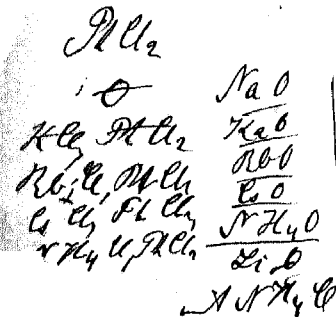 Pt Cl2
O
K Cl, Pt Cl2
Rb Cl, Pt Cl2
Cs Cl, Pt Cl2
N H4 Cl, Pt Cl2
Na O
Ka O
Rb O
Cs O
N H4 O
Li O
N H4 Cl